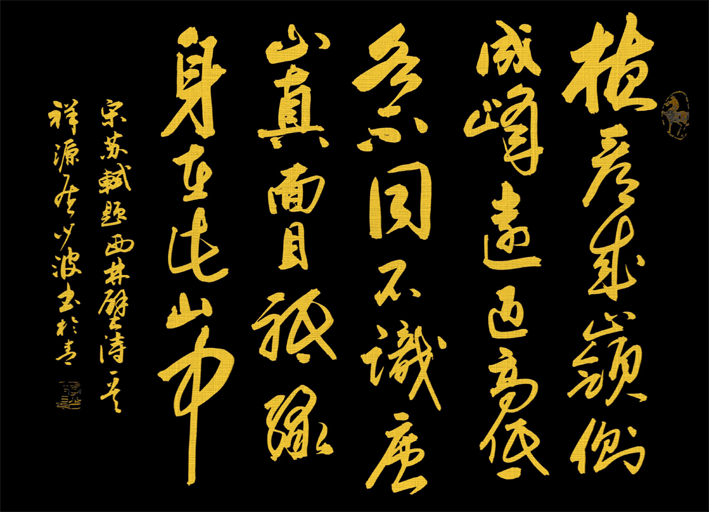 横看成嶺側
成峰遠近高低
各不同不識庐
山真面目祗缘
身在此山中
宋苏轼题西林壁诗一首
祥源居少波书於青